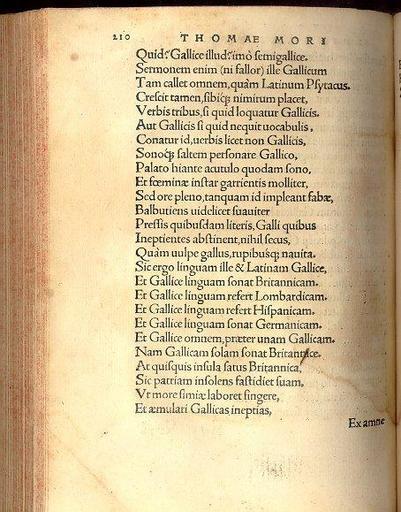 210 THOMAE MORI
Quid? Gallice illud? imò semigallice.
Sermonem enim (ni fallor) ille Gallicum
Tam callet omnem, quàm Latinum Psytacus.
Crescit tamen, sibiq; nimirum placet,
Verbis tribus, si quid loquatur Gallicis.
Aut Gallicis si quid nequit uocabulis,
Conatur id, uerbis licet non Gallicis,
Sonoq; saltem personare Gallico,
Palato hiante acutulo quodam sono,
Et fœminæ instar garrientis molliter,
Sed ore pleno, tanquam id impleant fabæ,
Balbutiens uidelicet suauiter
Pressis quibusdam literis, Galli quibus
Ineptientes abstinent, nihil secus,
Quàm uulpe gallus, rupibusq; nauita.
Sic ergo linguam ille & Latinam Gallice,
Et Gallice linguam sonat Britannicam.
Et Gallice linguam refert Lombardicam.
Et Gallice linguam refert Hispanicam.
Et Gallice linguam sonat Germanicam.
Et Gallice omnem, præter unam Gallicam.
Nam Gallicam solam sonat Britannice.
At quisquis insula satus Britannica,
Sic patriam insolens fastidiet suam,
Vt more simiæ laboret fingere,
Et æmulari Gallicas ineptias,
Ex amne